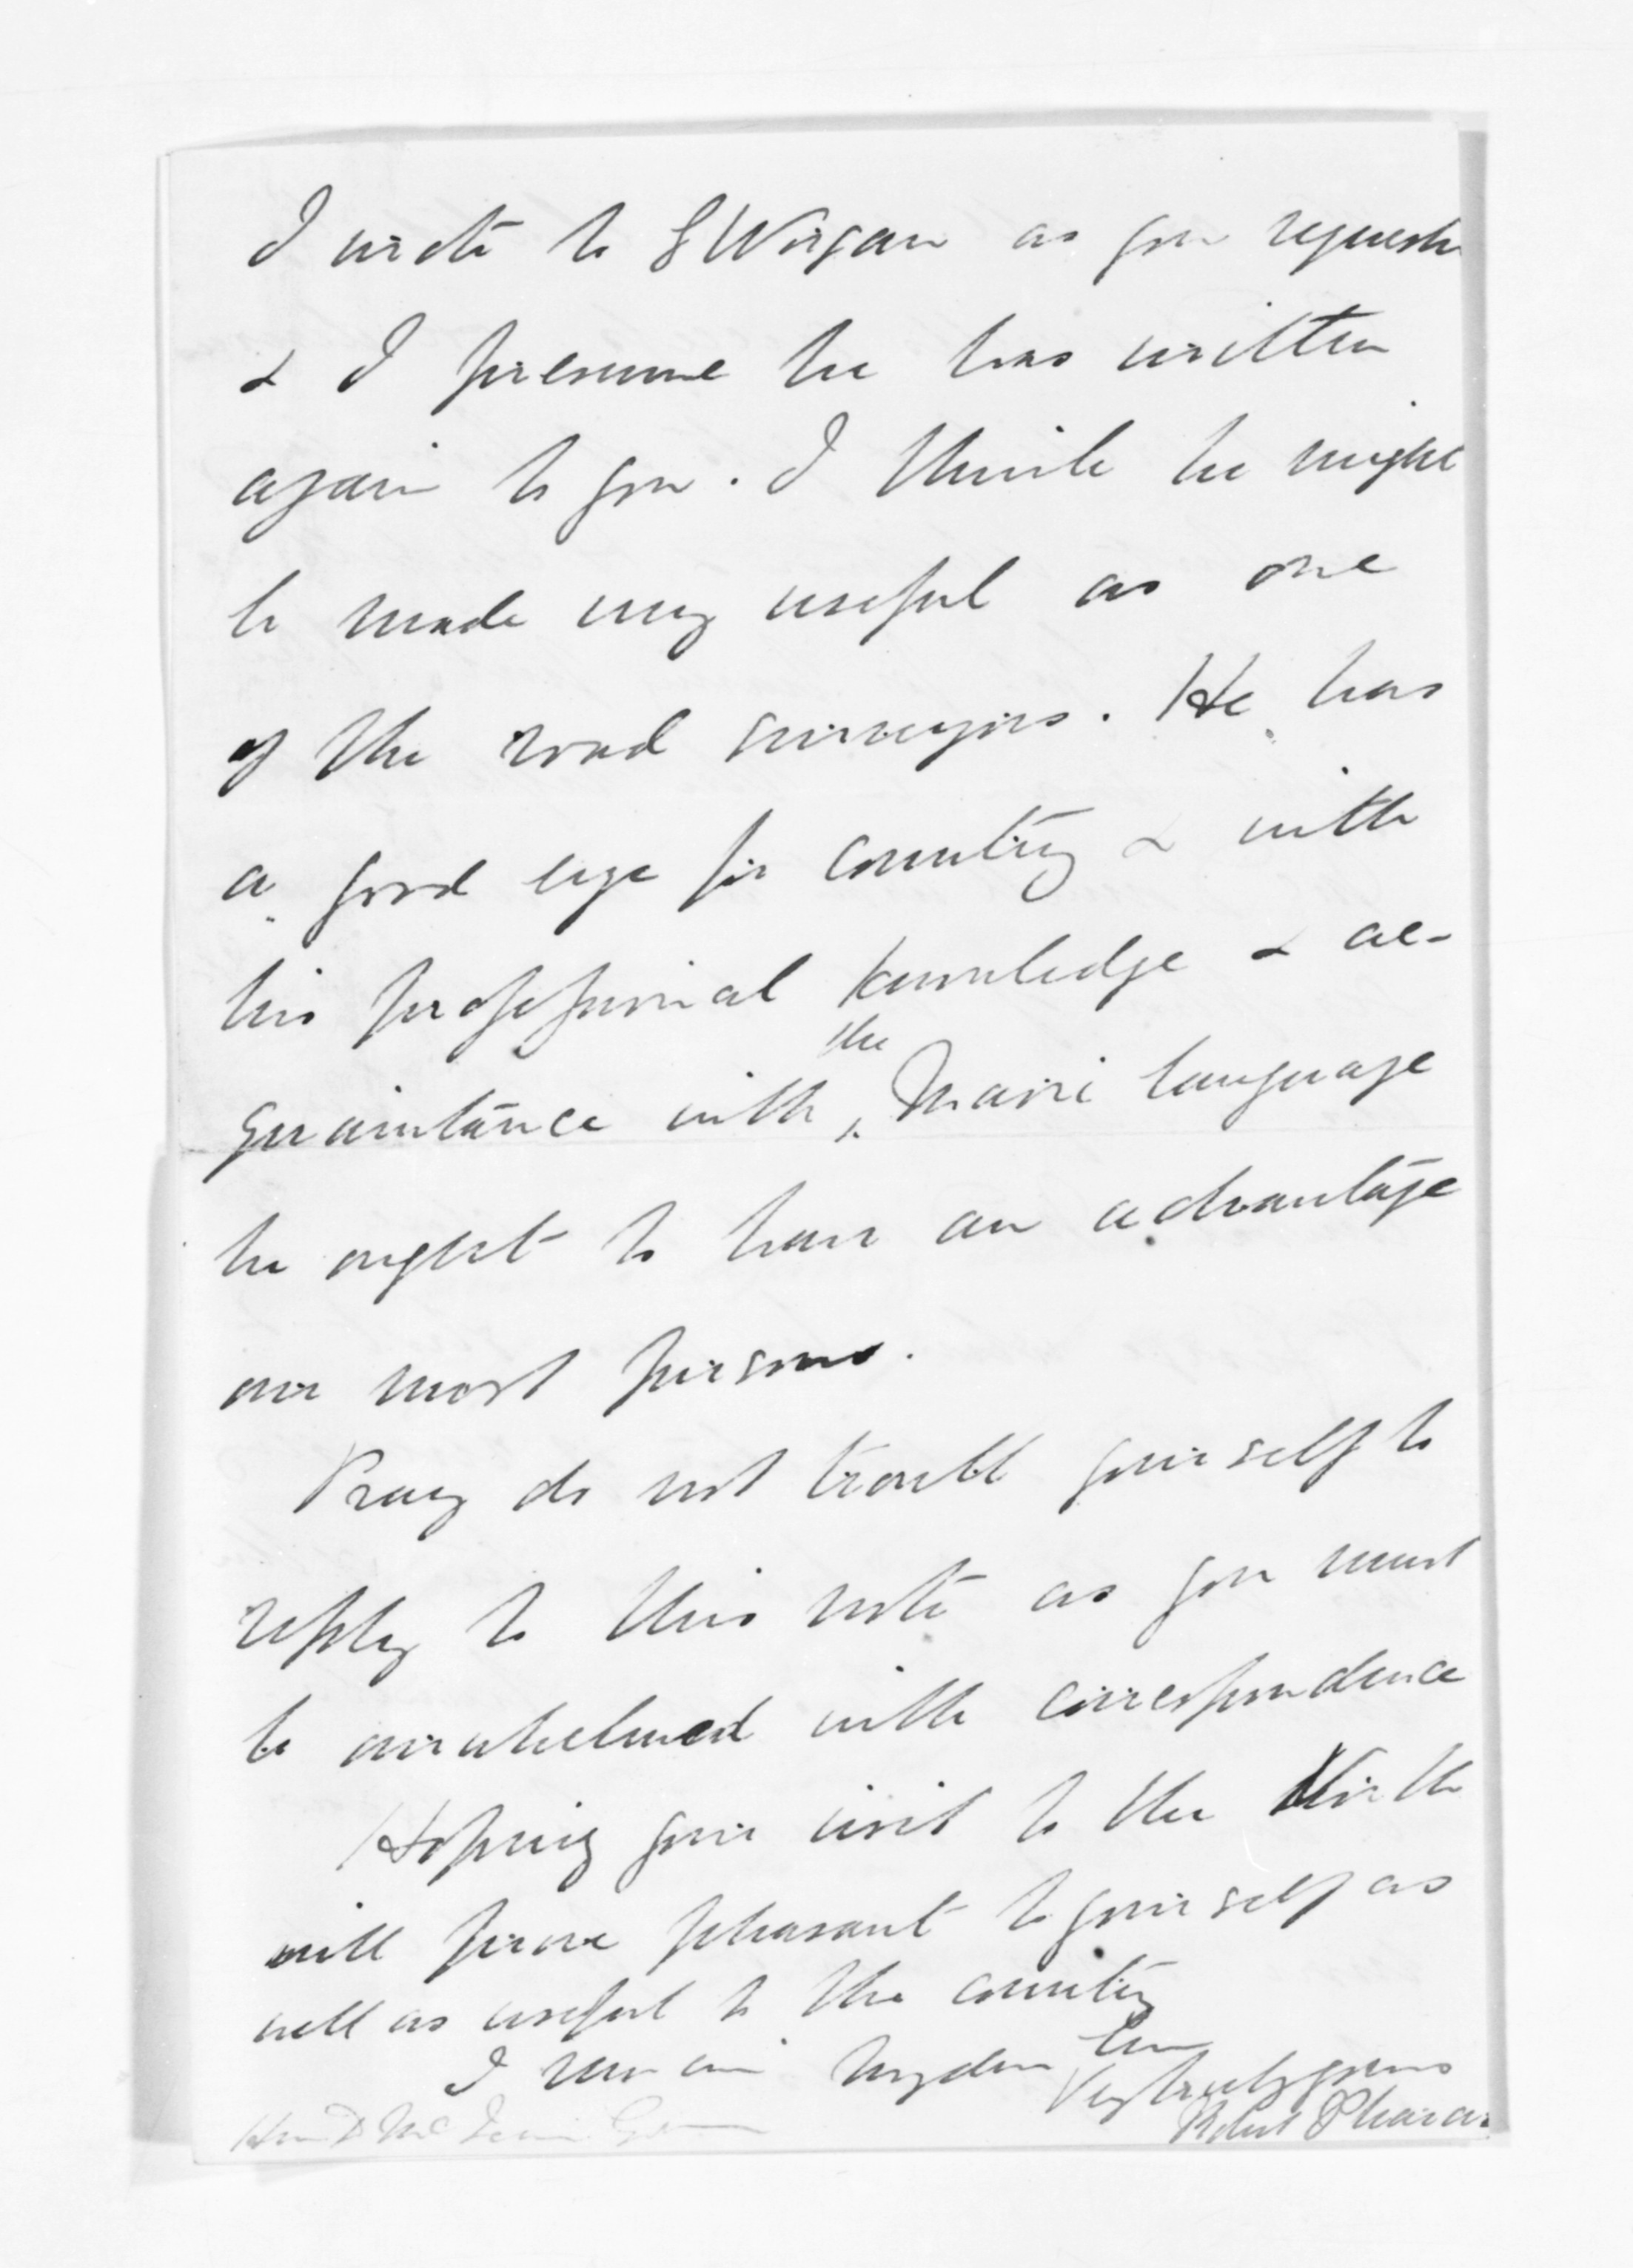 I wrote to S Worgan as you reques
& I presume he has written
again to you. I think he might
be made very useful as one
of the road surveyors. He has
a good eye for country & with
his professional knowledge & ac-
quaintance with the Maori language
he ought to have an advantage
over most persons.
Pray do not trouble yourself to
reply to this note as you must
be overwhelmed with correspondence
Hoping your visit to the North
will prove pleasant to yourself as
well as useful to the country
I remain my dear Sir
Very truly yours
Robert Pharazyn
Hon D McLean